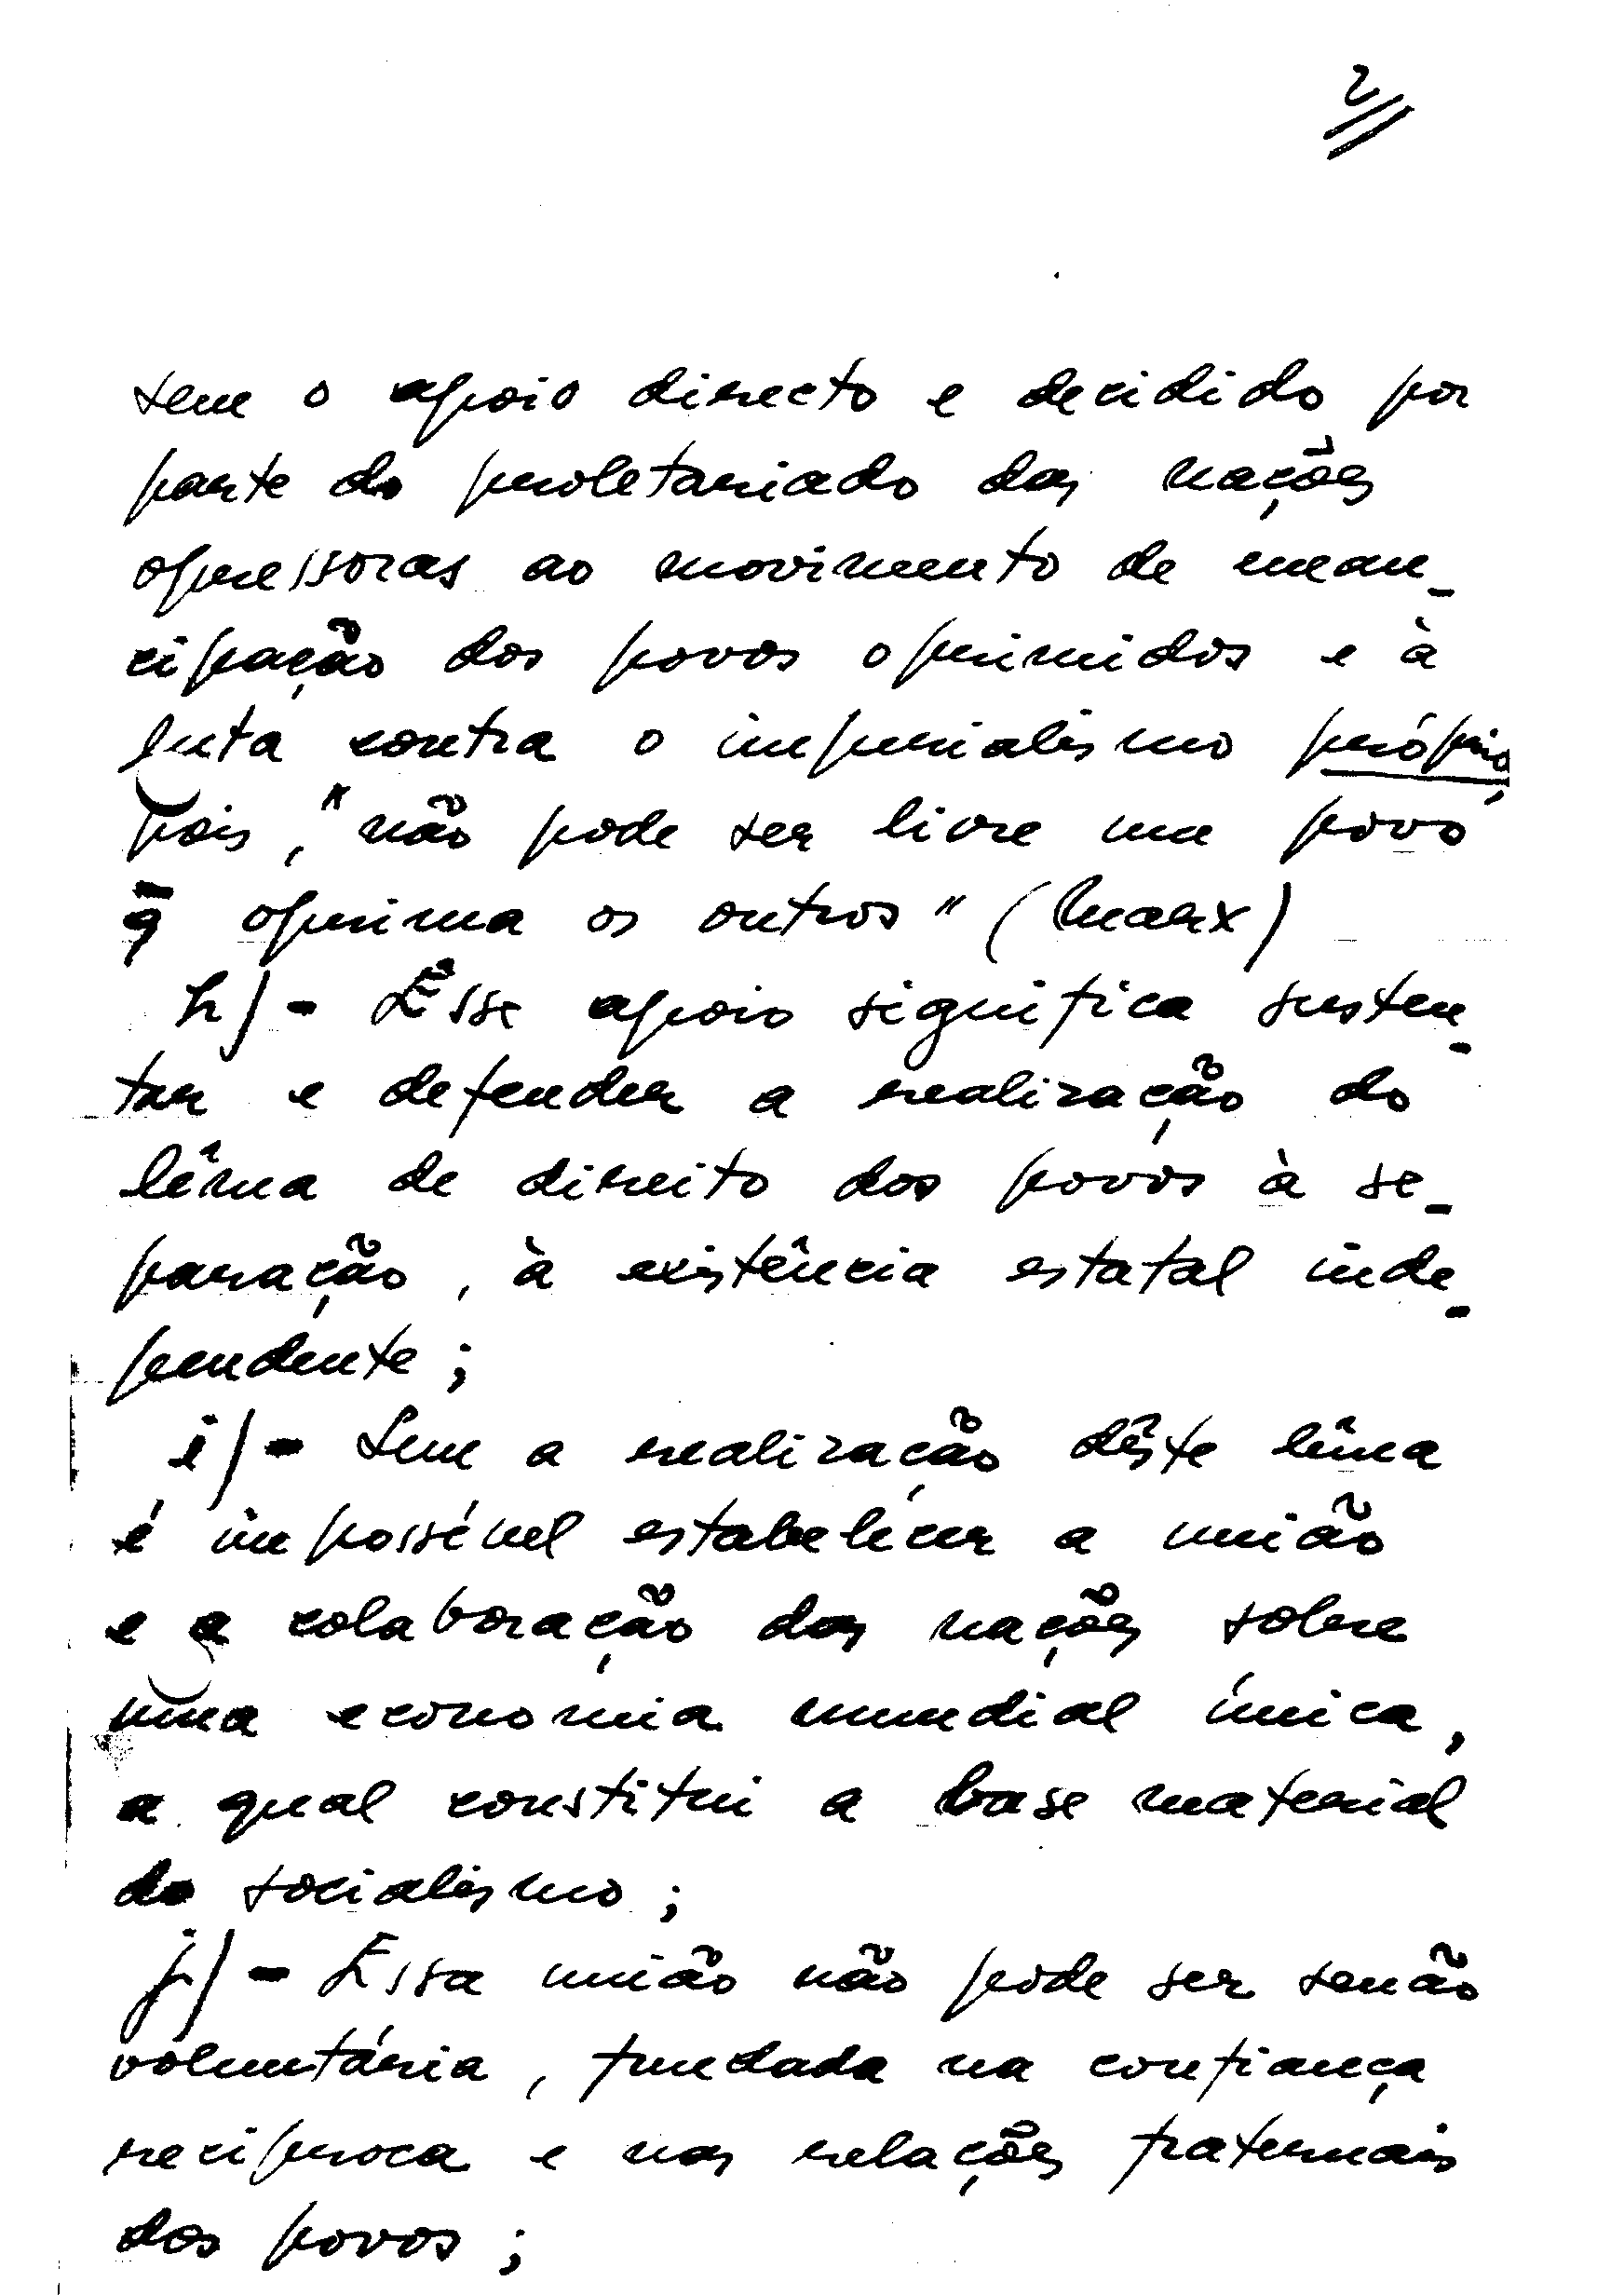 2//
sem o apoio directo e decidido por
parte do proletariado das nações
opressoras ao movimento de eman_
cipação dos povos oprimidos e à
luta contra o imperialismo próprio,
pois, "não pode ser livre um povo
q̄ oprima os outros" (Marx)
h) - Êsse apoio significa susten_
tar e defender a realização do
lêma de direito dos povos à se_
paração, à existência estatal inde_
pendente;
i) - Sem a realização dêste lêma
é impossível estabelecer a união
e a colaboração das nações sobre
uma economia mundial única,
a qual constitui a base material
do socialismo;
j) - Essa união não pode ser senão
voluntária, fundada na confiança
reciproca e nas relações fraternais
dos povos;